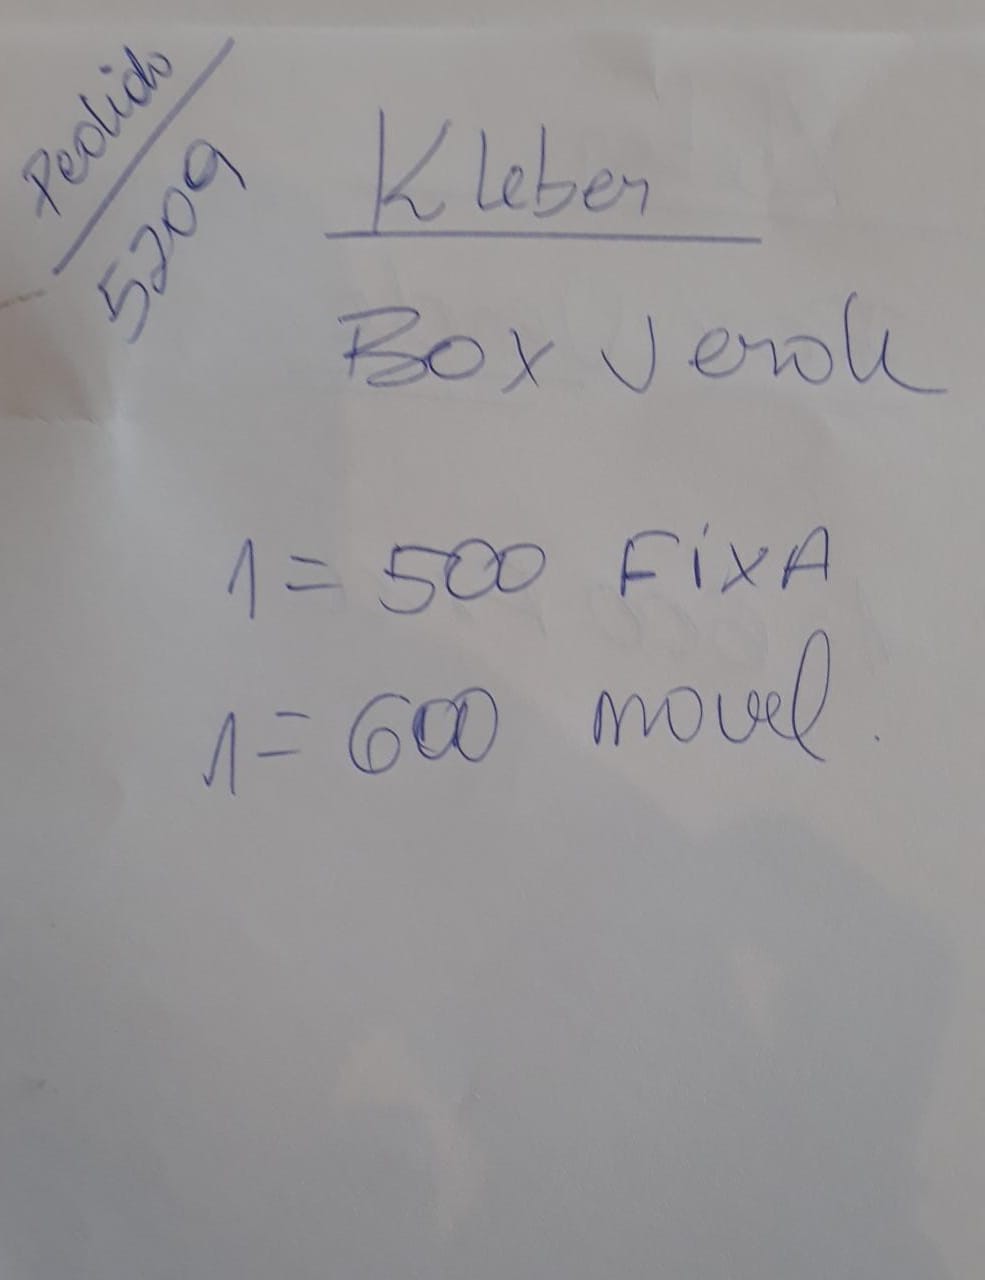 Pedido
5209
Kleber
Box Verde
1 = 500 FixA
1 = 600 movel.